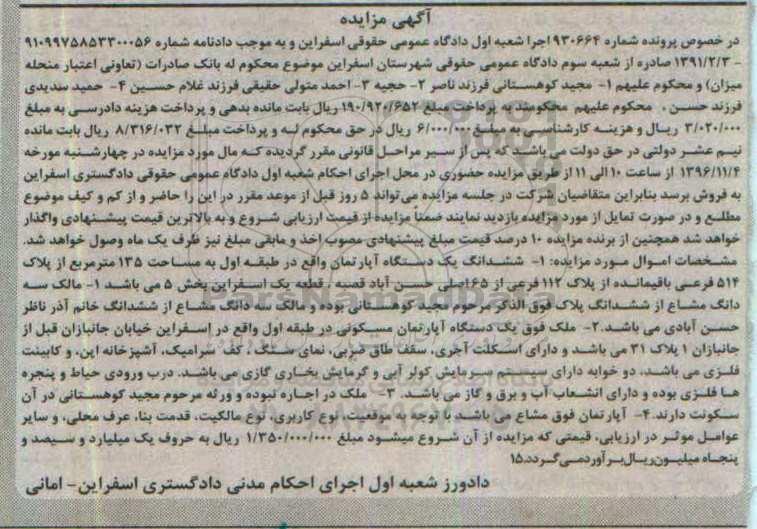 آگهی مزایده
در خصوص پرونده شماره ۹۳۰۶۶۴ اجرا شعبه اول دادگاه عمومی حقوقی اسفراین و به موجب دادنامه شماره ۹۱۰۹۹۷۵۸۵۳۳۰۰۰۵۶
- ۱۳۹۱/۲/۳ صادره از شعبه سوم دادگاه عمومی حقوقی شهرستان اسفراین موضوع محکوم له بانک صادرات (تعاونی اعتبار منحله
میزان) و محکوم علیهم ۱- مجید کوهستانی فرزند ناصر ۲- حجیه ۳- احمد متولی حقیقی فرزند غلام حسین ۴- حمید سدیدی
فرزند حسن . محکوم علیهم محکومند به پرداخت مبلغ ۱۹۰/۹۲۰/۶۵۲ ریال بابت مانده بدهی و پرداخت هزینه دادرسی به مبلغ
۳/۰۲۰/۰۰۰ ریال و هزینه کارشناسی به مبلغ ۶/۰۰۰/۰۰۰ ریال در حق محکوم له و پرداخت مبلغ ۸/۳۱۶/۰۳۲ ریال بابت مانده
نیم عشر دولتی در حق دولت می باشد که پس از سیر مراحل قانونی مقرر گردیده که مال مورد مزایده در چهارشنبه مورخه
۱۳۹۶/۱۱/۴ از ساعت ۱۰ الی ۱۱ از طریق مزایده حضوری در محل اجرای احکام شعبه اول دادگاه عمومی حقوقی دادگستری اسفراین
به فروش برسد بنابراین متقاضیان شرکت در جلسه مزایده می تواند ۵ روز قبل از موعد مقرر در این را حاضر و از کم و کیف موضوع
مطلع و در صورت تمایل از مورد مزایده بازدید نمایند ضمناً مزایده از قیمت ارزیابی شروع و به بالاترین قیمت پیشنهادی واگذار
خواهد شد همچنین از برنده مزایده ۱۰ درصد قیمت مبلغ پیشنهادی مصوب اخذ و مابقی مبلغ نیز ظرف یک ماه وصول خواهد شد.
مشخصات اموال مورد مزایده: ۱- ششدانگ یک دستگاه آپارتمان واقع در طبقه اول به مساحت ۱۳۵ مترمربع از پلاک
۵۱۴ فرعی باقیمانده از پلاک ۱۱۲ فرعی از ۶۵ اصلی حسن آباد قصبه ، قطعه یک اسفراین بخش ۵ می باشد ۱- مالک سه
دانگ مشاع از ششدانگ پلاک فوق الذکر مرحوم مجید کوهستانی بوده و مالک سه دانگ مشاع از ششدانگ خانم آذر ناظر
حسن آبادی می باشد. ۲- ملک فوق یک دستگاه آپارتمان مسکونی در طبقه اول واقع در اسفراین خیابان جانبازان قبل از
جانبازان ۱ پلاک ۳۱ می باشد و دارای اسکلت آجری، سقف طاق ضربی، نمای سنگ ، کف سرامیک، آشپزخانه اپن، و کابینت
فلزی می باشد، دو خوابه دارای سیستم سرمایش کولر آبی و گرمایش بخاری گازی می باشد. درب ورودی حیاط و پنجره
ها فلزی بوده و دارای انشعاب آب و برق و گاز می باشد. ۳- ملک در اجاره نبوده و ورثه مرحوم مجید کوهستانی در آن
سکونت دارند. ۴- آپارتمان فوق مشاع می باشد با توجه به موقعیت، نوع کاربری، نوع مالکیت، قدمت بنا، عرف محلی، و سایر
عوامل موثر در ارزیابی، قیمتی که مزایده از آن شروع میشود مبلغ ۱/۳۵۰/۰۰۰/۰۰۰ ریال به حروف یک میلیارد و سیصد و
پنجاه میلیون ریال برآورد می گردد. ۱۵
دادورز شعبه اول اجرای احکام مدنی دادگستری اسفراین- امانی
ParsNamadData